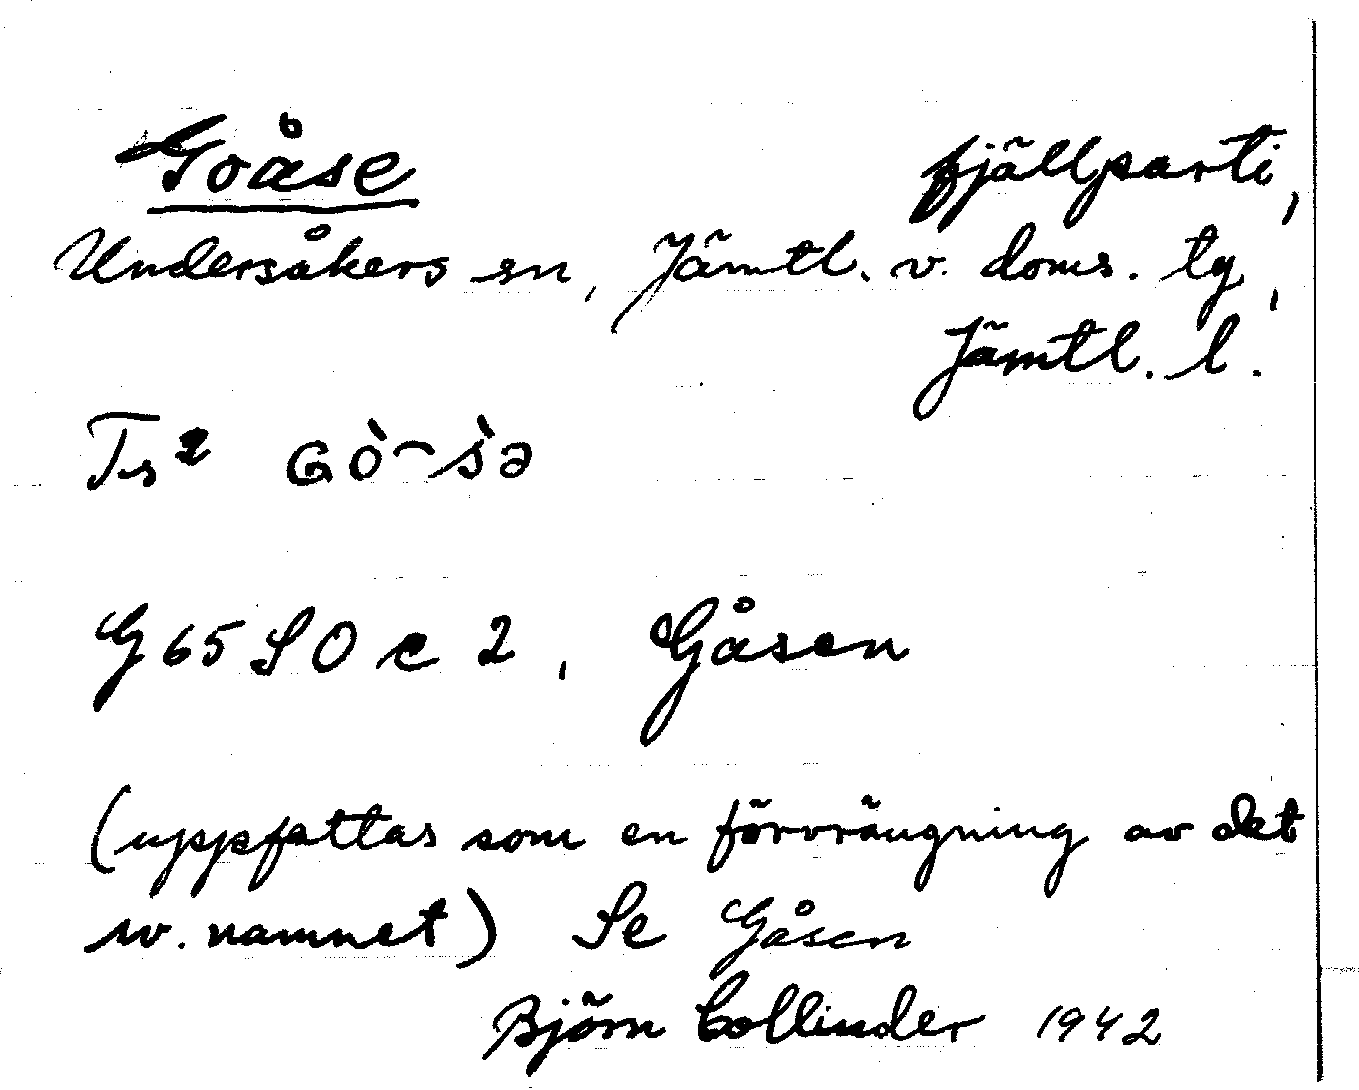 Goåse fjällparti,
Undersåkers sn, Jämtl. v. doms. lg,
Jämtl. l.
Ts² Gò⁀s̀ə
G65 SO c 2, Gåsen
(uppfattas som en förvrängning av det
sv. namnet) Se Gåsen
Björn Collinder 1942